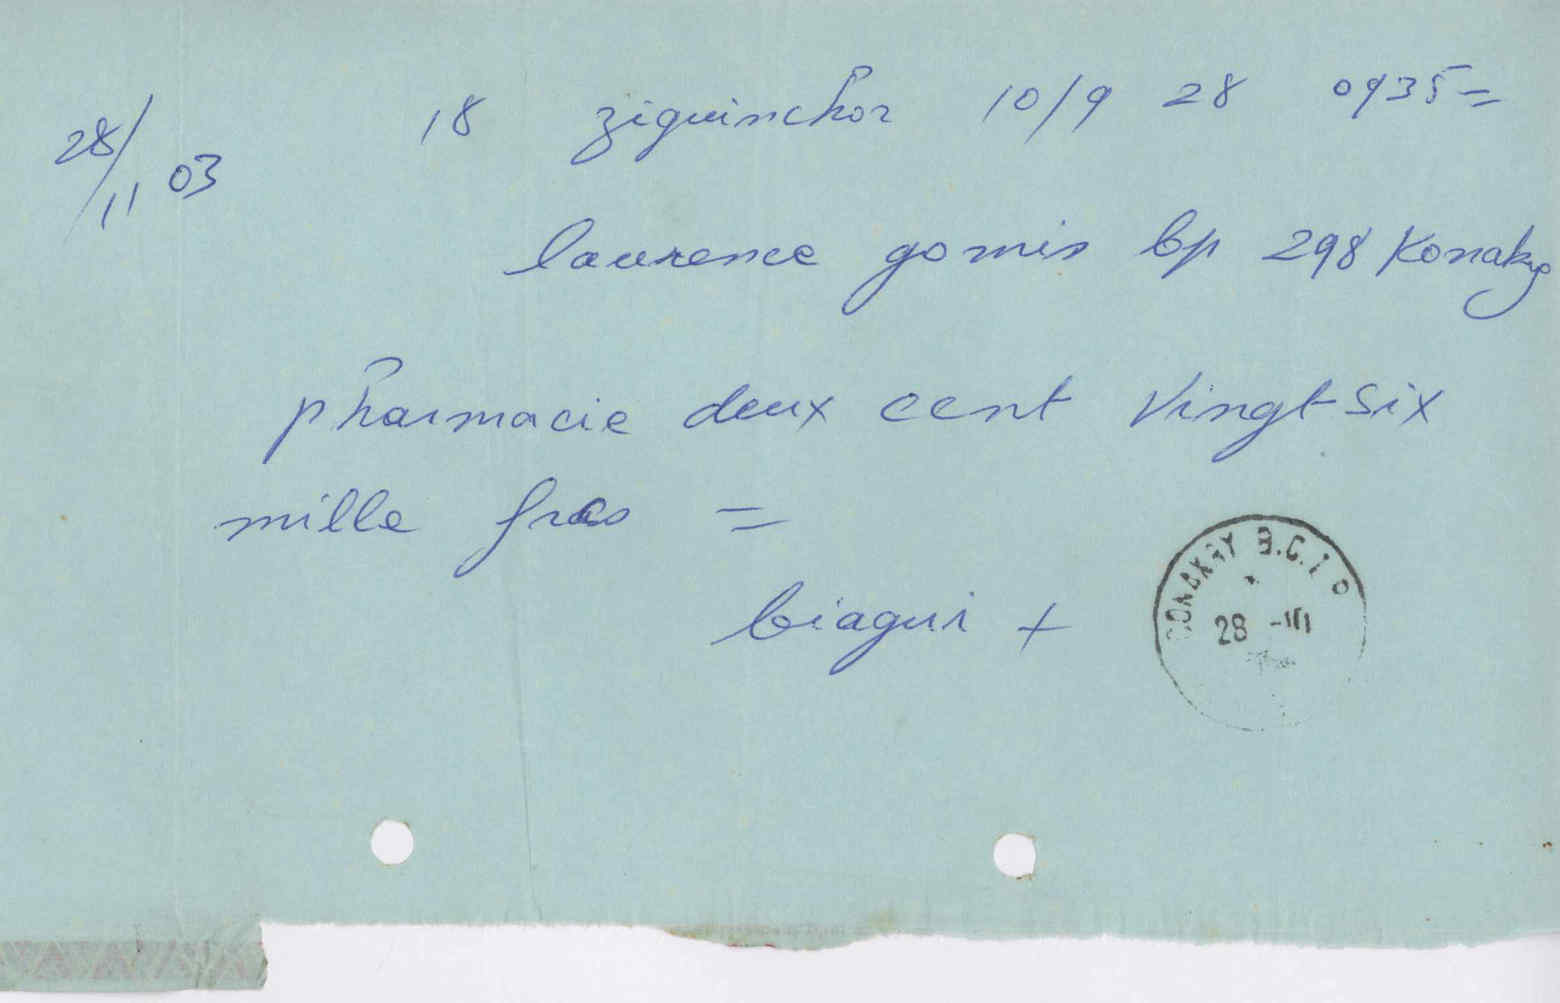 18 ziguinchor 10/9 28 0935=
28/11 03
laurence gomis bp 298 Konakry
pharmacie deux cent vingt six
mille frcs =
biagui +
CONAKRY B.C.T P
28